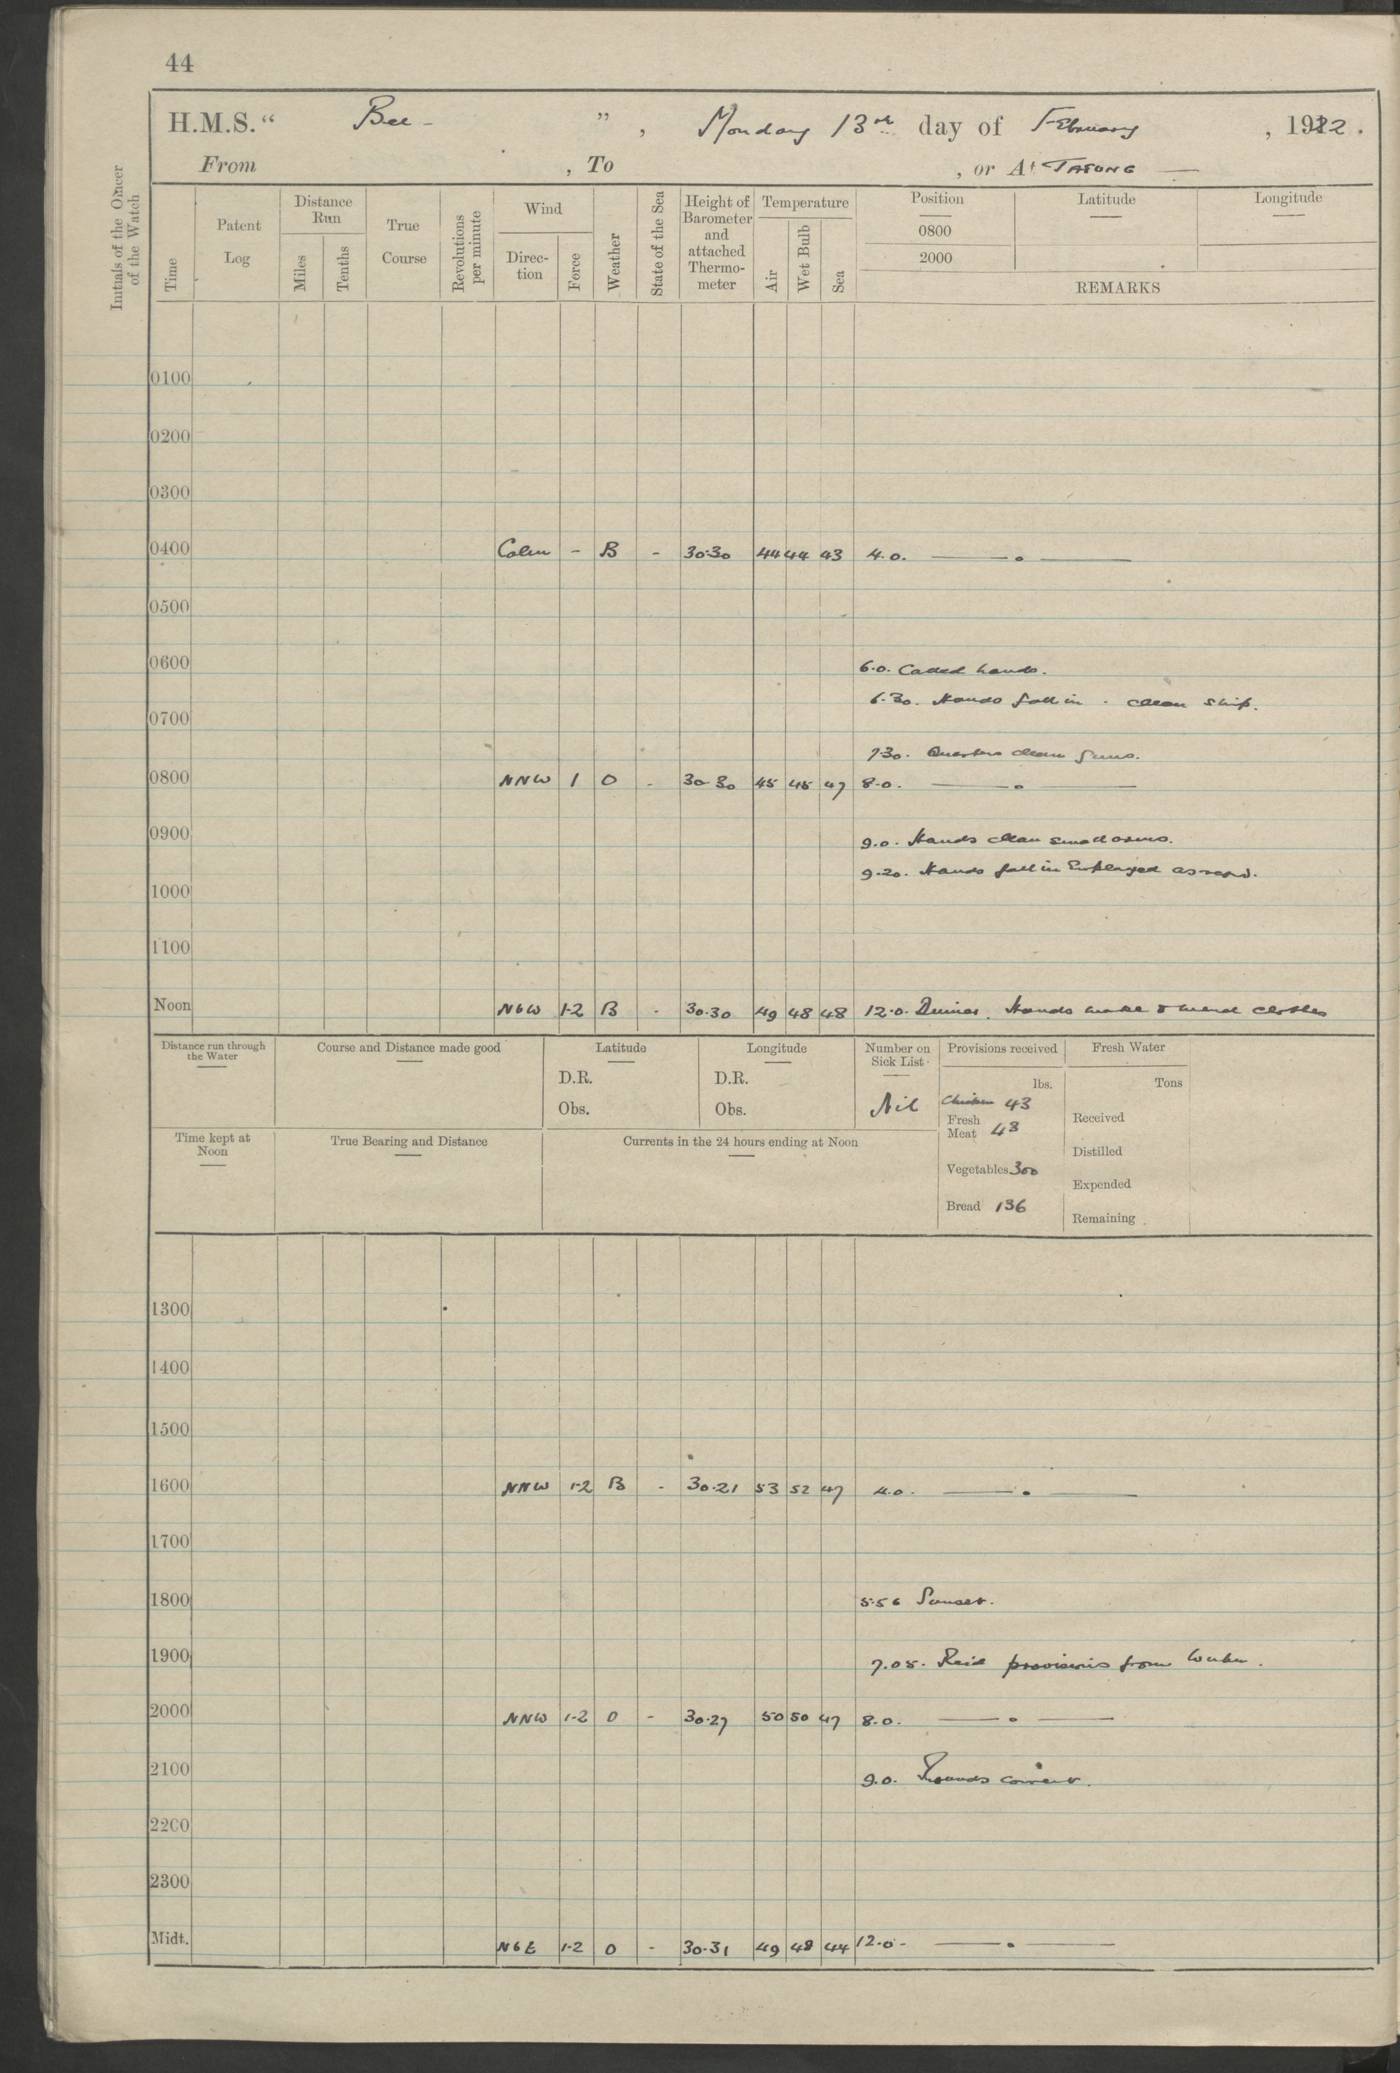 44
H.M.S. “ Bee - ” , Monday 13th day of February , 1922 .
From , To , or At TATUNG —
Initials of the Officer of the Watch
Time
Patent Log
Distance Run
Miles
Tenths
True Course
Revolutions per minute
Wind
Direc-tion
Force
Weather
State of the Sea
Height of Barometer and attached Thermo-meter
Temperature
Air
Wet Bulb
Sea
Position
0800
2000
Latitude
Longitude
REMARKS
0100
0200
0300
0400 Calm - B - 30.30 44 44 43 4.0. —— . ——
0500
0600 6.0. Called hands.
6.30. Hands fall in . clean ship.
0700
7.30. Quarters clean guns.
0800 NNW 1 O - 30.30 45 45 47 8.0. —— . ——
0900 9.0. Hands clean small arms.
9.20. Hands fall in Employed as reqd.
1000
1100
Noon NbW 1-2 B - 30.30 49 48 48 12.0. Dinner. Hands make & mend clothes
Distance run through the Water
Course and Distance made good
Latitude
D.R.
Obs.
Longitude
D.R.
Obs.
Number on Sick List
Nil
Provisions received
lbs.
Chicken 43
Fresh Meat 48
Vegetables 300
Bread 136
Fresh Water
Tons
Received
Distilled
Expended
Remaining
Time kept at Noon
True Bearing and Distance
Currents in the 24 hours ending at Noon
1300
1400
1500
1600 NNW 1-2 B - 30.21 53 52 47 4.0. —— . ——
1700
1800 5.56 Sunset.
1900 7.05. Recd provisions from
2000 NNW 1-2 O - 30.27 50 50 47 8.0. —— . ——
2100 9.0. Rounds correct.
2200
2300
Midt. NbE 1-2 O - 30.31 49 48 44 12.0 - —— . ——